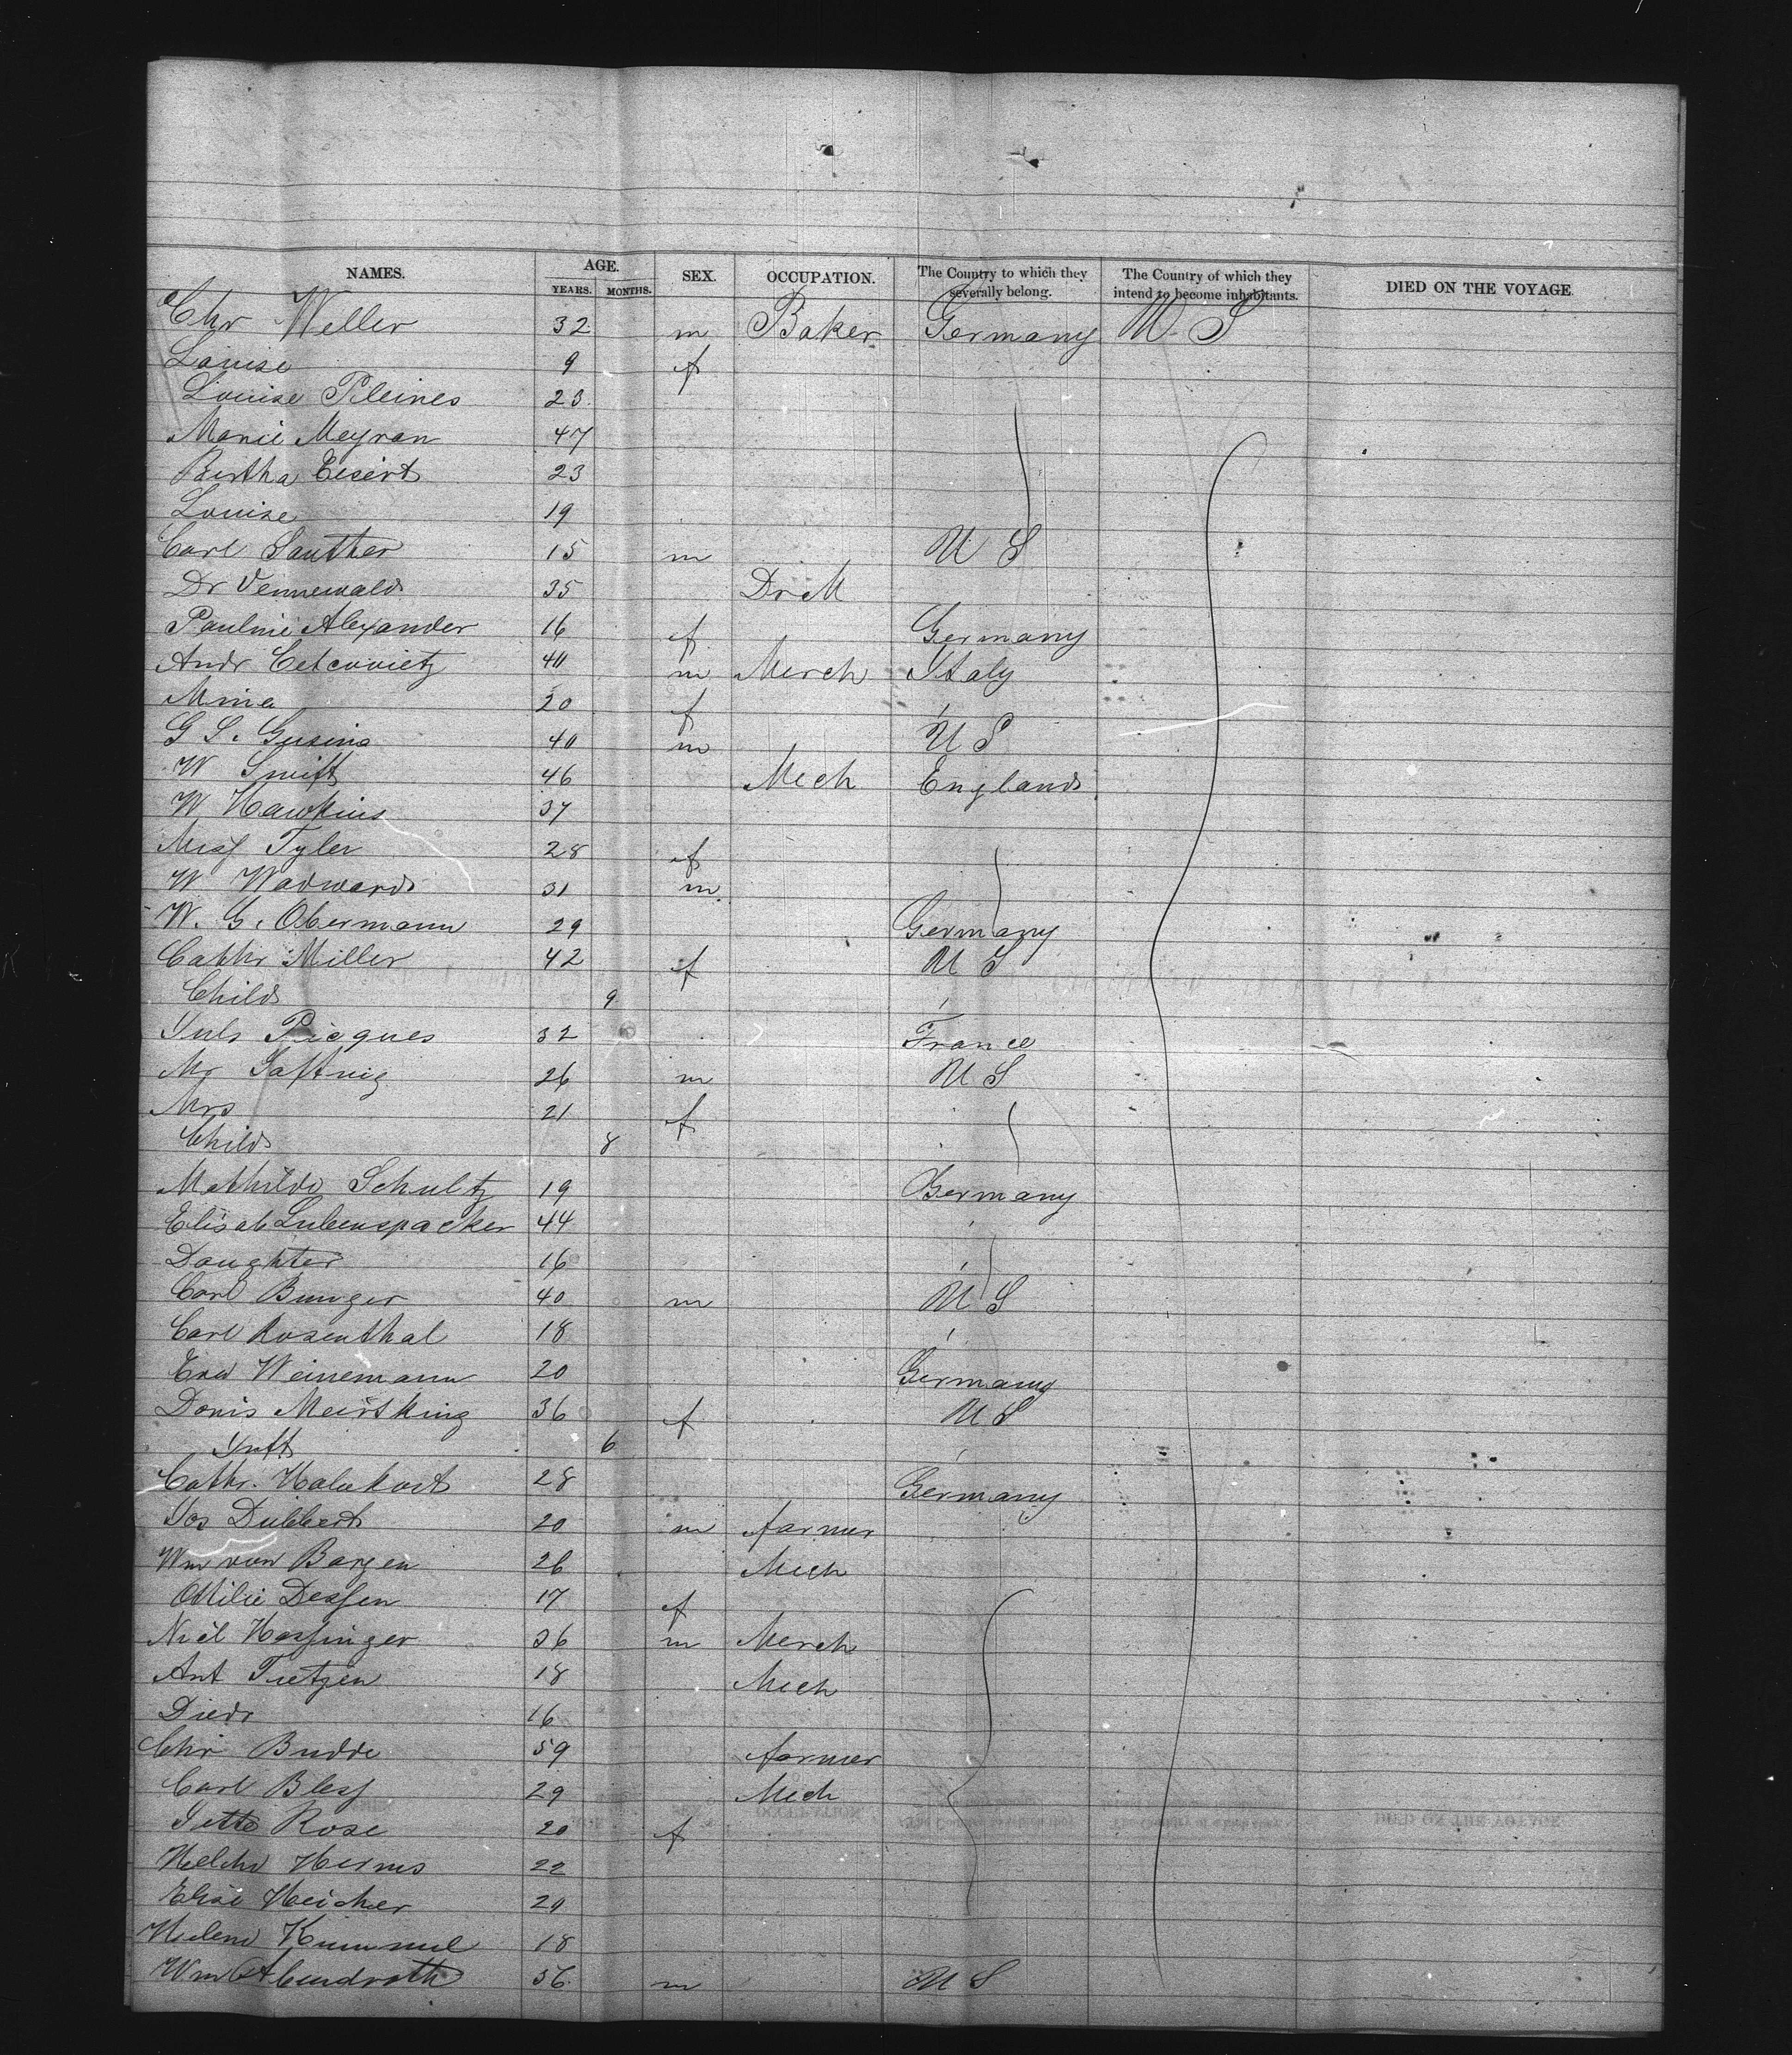 NAMES. AGE. SEX. OCCUPATION. The Country to which they severally belong. The Country of which they intend to become inhabitants. DIED ON THE VOYAGE
YEARS. MONTHS.
Chr Weller 32 m Baker Germany U. S
Louise 9 f
Louise Pleines 23
Marie Meyran 47
Bertha Eisert 23
Louise 19
Carl Sauther 15 m U S
Dr Vennewald 35 Dr M
Pauline Alexander 16 f Germany
Andr Cetcovietz 40 m Merch Italy
Mina 20 f
G S. Gusina 40 m U S
W Swift 46 Mech England
W Hawkins 37
Miss Tyler 28 f
W Wadward 31 m
W. G. Obermann 29 Germany
Cathr Miller 42 f U S
Child 9
Juls Picques 32 France
Mr 26 m U S
Mrs 21 f
Child 8
Mathilde Schultz 19 Germany
Elisab Lubenspacker 44
Daughter 16
Carl Bunger 40 m U S
Carl Rosenthal 18
Weinemann 20 Germany
Doris Meistking 36 f U S
Inft 6
Cathr. Halukort 28 Germany
Jos Dubbert 20 m farmer
Wm von Bargen 26 Mech
Ottilie Dessen 17 f
Hassinger 36 m Merch
Ant Tietjen 18 Mech
Diedr 16
Chr Budde 59 farmer
Carl Bless 29 Mech
Jette Rose 20 f
Herms 22
Elise Heicher 20
Helene Kummel 18
Wm Abendroth 56 m U S